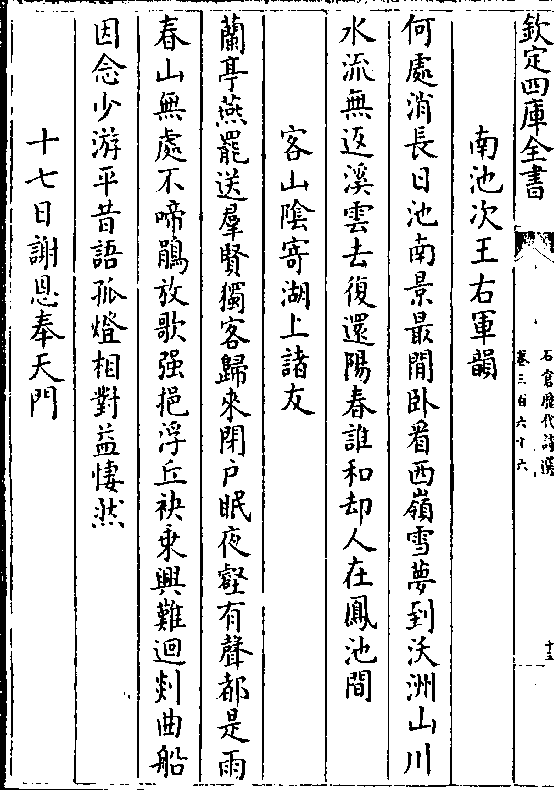 欽定四庫全書
石倉歷代詩選
卷三百六十六
十三
南池次王右軍韻
何處消長日池南景最閒卧看西嶺雪夢到沃洲山川
水流無返溪雲去復還陽春誰和却人在鳳池間
客山陰寄湖上諸友
蘭亭燕罷送羣賢獨客歸來閉户眠夜壑有聲都是雨
春山無處不啼鵑放歌强挹浮丘袂乘興難迴剡曲船
因念少游平昔語孤燈相對益悽然
十七日謝恩奉天門